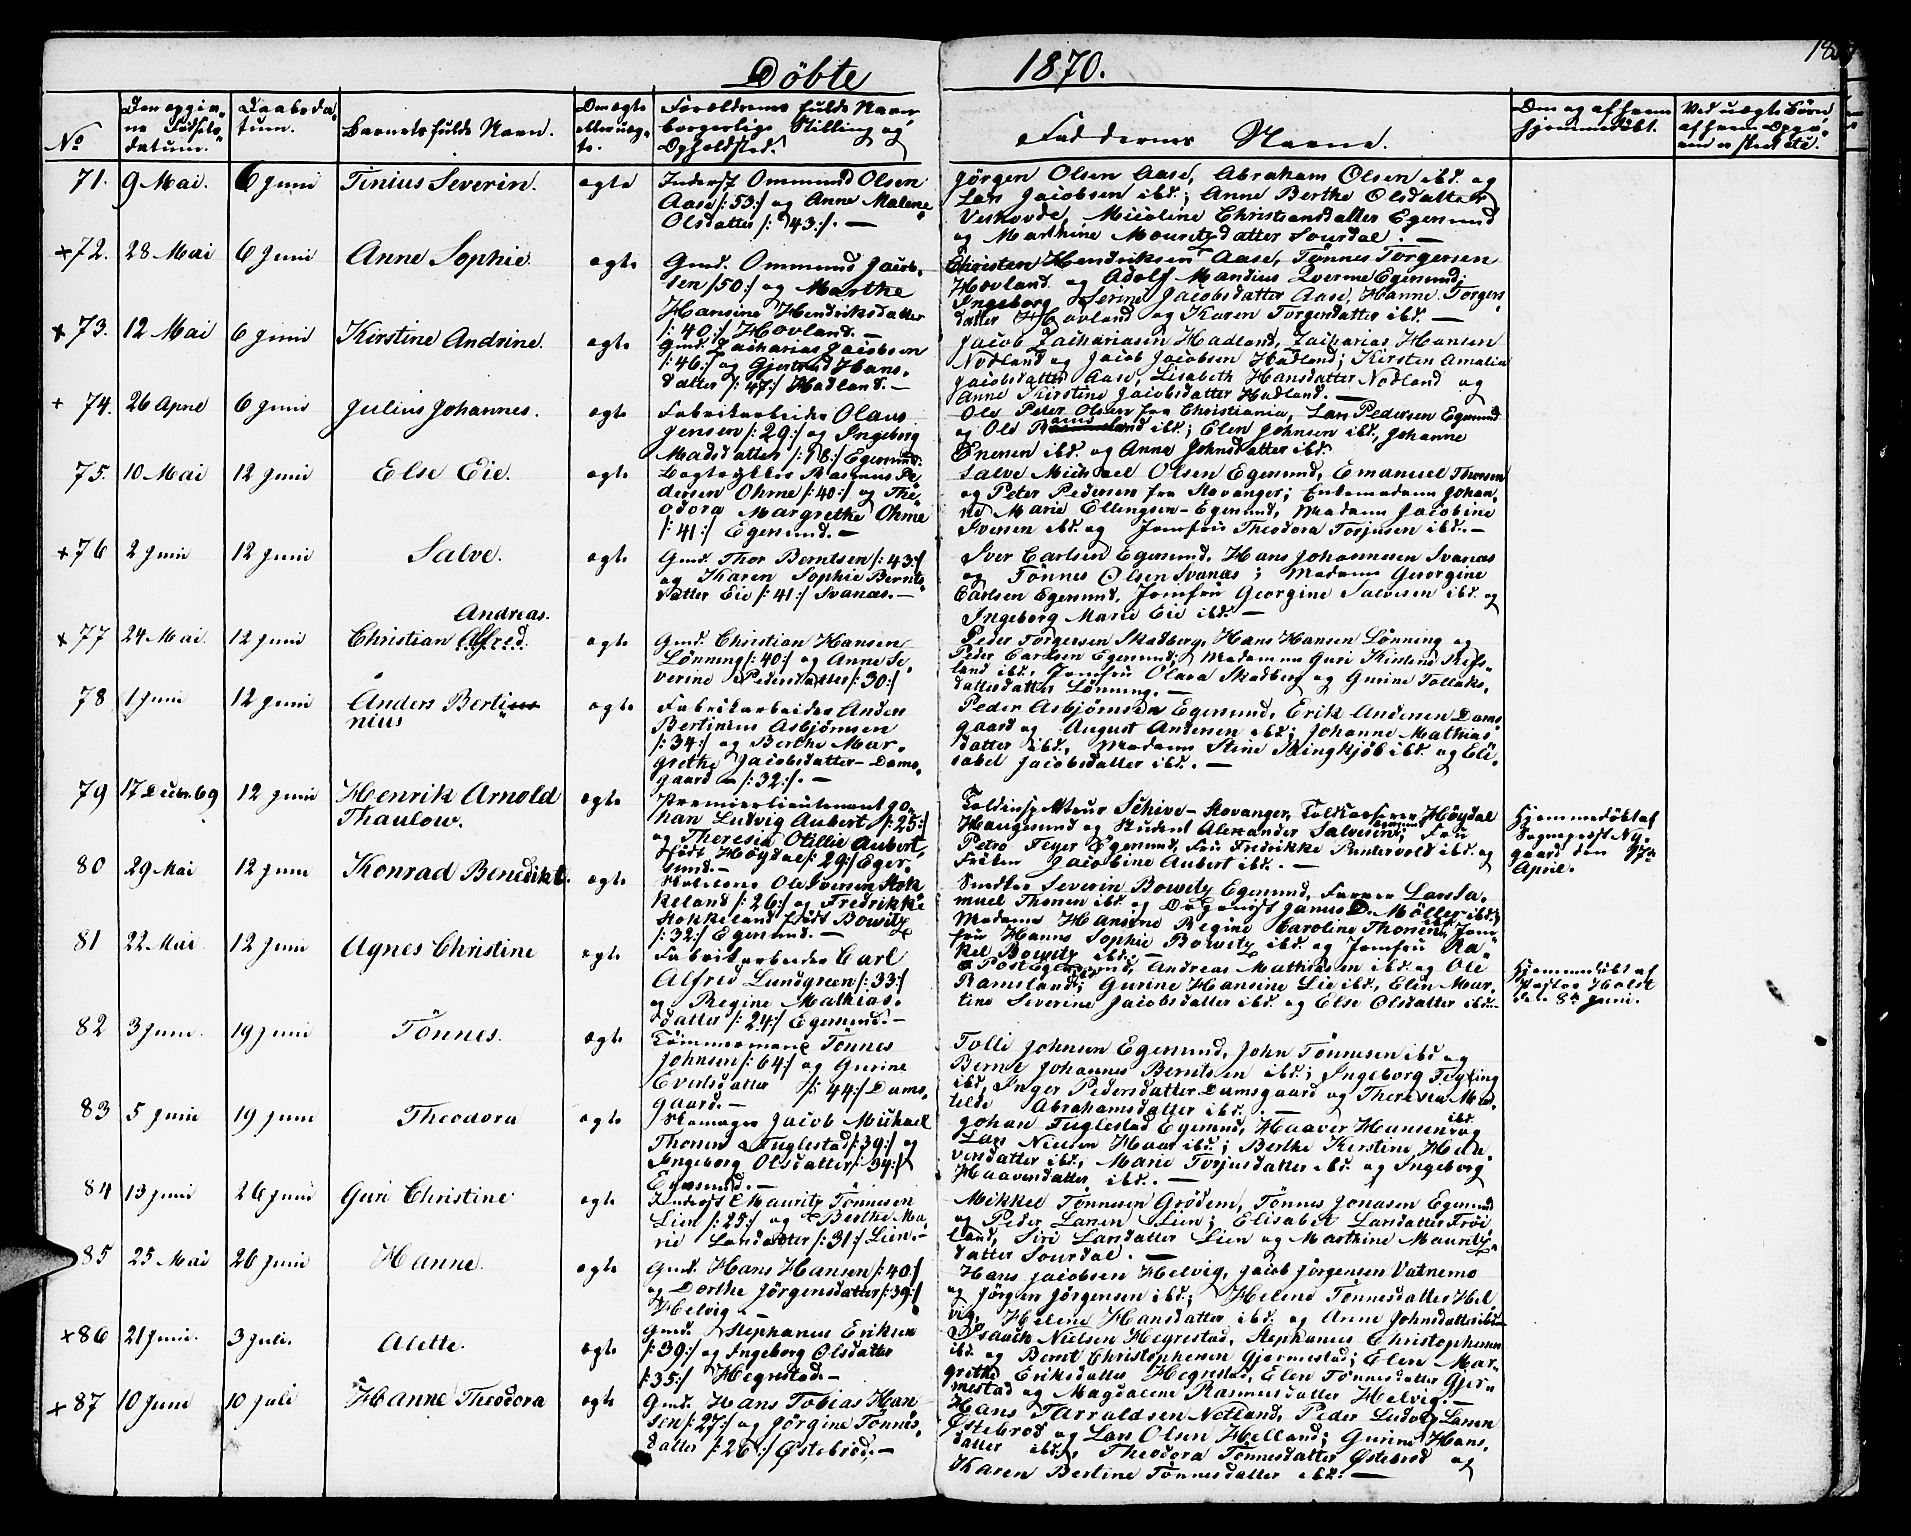 Döbte 1870.
No
Den opgivne Fødselsdatum.
Daabsdatum.
Barnets fulde Navn.
Om ægte eller uægte.
Forældrenes fulde Navn borgerlige Stilling og Opholdsted.
Faddernes Navne.
Om og af hvem hjemmedøbt.
71. 9 Mai. 6 Juni Tinius Severin. ægte
Inderst Ommund Olsen
Aase /:53:/ og Anne Malene
Olsdatter /:43:/. —
Jörgen Olsen Aase, Abraham Olsen ibd. og
Lars Jacobsen ibd.; Anne Berthe Olsdatter
Veshovde, Nicoline Christiansdatter Egersund
og Marthine Mouritzdatter Sourdal. —
+72. 28 Mai 6 Juni Anne Sophie. ægte
Gmd. Ommund Jacob-
sen /50:/ og Marthe
Hansine Hendriksdatter
/:40:/ Hovland. —
Christen Hendriksen Aase, Tönnes Torgersen
Hovland og Adolf Mandius Qverme Egersund;
Ingeborg Serine Jacobsdatter Aase, Hanne Torgers
datter Hovland og Karen Torgersdatter ibd. —
+73. 12 Mai 6 Juni Kirstine Andrine. ægte
Gmd. Zacharias Jacobsen
/:46:/ og Gjertrud Hans-
datter /:47:/ Hadland. —
Jacob Zachariasen Hadland, Zacharias Hansen
Nodland og Jacob Jacobsen Hadland; Kirsten Amalia
Jacobsdatter Aase, Lisabeth Hansdatter Nodland og
Anne Kirstine Jacobsdatter Hadland. —
+ 74. 26 Apne 6 Juni Julius Johannes. ægte
Fabrikarbeider Olaus
Jensen /:29:/ og Ingeborg
Madsdatter /:18:/ Egersund.
Ole Peter Olsen fra Christiania, Lars Pedersen Egersund
og Ole ibd.; Elen Johnsen ibd., Johanne
Enersen ibd. og Anne Johnsdatter ibd.
75. 10 Mai 12 Juni Else Eie. ægte
Bogtrykker Rasmus Pe-
dersen Ohme /:40:/ og The-
odora Margrethe Ohme
/:41:/ Egersund. —
Salve Michael Olsen Egersund, Emanuel Thorsen
og Peter Pedersen fra Stavanger; Enkemadame Johan-
ne Marie Ellingsen - Egersund, Madame Jacobine
Iversen ibd. og Jomfru Theodora Torjusen ibd. —
+76 2 Juni 12 Juni Salve. ægte
Gmd. Thor Berntsen /:43:/
og Karen Sophie Bernts-
datter Eie /:41:/ Svanæs. —
Iver Carlsen Egersund, Hans Johannesen Svanæs
og Tönnes Olsen Svanæs; Madame Georgine
Carlsen Egersund, Jomfru Georgine Salvesen ibd. og
Ingeborg Marie Eie ibd. —
Andreas.
+77 24 Mai. 12 Juni Christian Alfred. ægte
Gmd. Christian Hansen
Lönning /:40:/ og Anne Se-
verine Pedersdatter /:30:/
Peder Torgersen Skadberg, Hans Hansen Lönning og
Peder Carlsen Egersund; Madame Guri Kirstine Refs-
land ibd., Jomfru Olava Skadberg og Gurine Tollaks-
dattersdatter Lönning. —
78 1 Juni 12 Juni Anders Berti
nius ægte
Fabrikarbeider Anders
Bertinius Asbjörnsen
/:34:/ og Berthe Mar-
grethe Jacobsdatter - Dams-
gaard /:32:/. —
Peder Asbjörnsen Egersund, Erik Andersen Dams
gaard og August Andersen ibd.; Johanne Mathias
datter ibd., Madame Stine Ringkjöb ibd. og Eli-
sabet Jacobsdatter ibd. —
79 17 Decbr. 69 12 Juni Henrik Arnold
Thaulow. ægte
Premierlieutenant Jo-
han Ludvig Aubert /:25:/
og Theresia Otillie Aubert,
født Höydal /:29:/ Eger-
sund. —
Toldinspekteur Schive - Stavanger, Toldkasserer Höydal
Haugesund og Student Alexander Salvesen Egersund; Fru
Petra Feyer Egersund, Fru Fredrikke Rintervold ibd. og
Fröken Jacobine Aubert ibd. —
Hjemmedøbt af
Sogneprest Ny-
gaard den 17de
April.
80 29 Mai 12 Juni Konrad Benedikt. ægte
Ole Iversen Stok
keland /:26:/ og Fredrikke
Stokkeland født Bowitz
/:32:/ Egersund. —
Snedker Severin Bowitz Egersund, Farver Lars Sa-
muel Thorsen ibd. og Organist Janus D. Möller ibd.;
Madame Hansine Regine Caroline Thorsen ibd., Jom-
fru Hanna Sophie Bowitz ibd. og Jomfru Ra-
kel Bowitz ibd. —
81 22 Mai 12 Juni Agnes Christine ægte
Fabrikarbeider Carl
Alfred Lundgreen /:33:/
og Regine Mathias-
datter /:24:/ Egersund. —
Egersund, Andreas Mathiasen ibd. og Ole
Ramsland ibd.; Gurine Hansine Lie ibd., Elen Mar-
tine Severine Jacobsdatter ibd. og Else Olsdatter ibd. —
Hjemmedøbt af
Pastor Holst
den 8de Juni.
82 3 Juni. 19 Juni Tönnes. ægte
Tömmermand Tönnes
Johnsen /:64:/ og Gurine
Evertsdatter /:44:/ Dams-
gaard. —
Tolli Johnsen Egersund, John Tönnesen ibd. og
Bernt Johannes Berntsen ibd.; Ingeborg Tegling
ibd., Inger Pedersdatter Damsgaard og Theresia Ma-
tilde Abrahamsdatter ibd. —
83 5 Juni 19 Juni Theodora ægte
Skomager Jacob Michael
Thorsen Fuglestad /:39:/ og
Ingeborg Olsdatter /:34:/
Egersund. —
Johan Fuglestad Egersund, Haaver Hansen ibd. og
Lars Nielsen Haar ibd.; Berthe Kirstine Hel-
vensdatter ibd., Marie Torjusdatter ibd. og Ingeborg
Haavensdatter ibd. —
84 13 Juni 26 Juni Guri Christine ægte
Inderst Mauritz Tönnesen
Lien /:25:/ og Berthe Ma-
rie Larsdatter /:31:/ Lien. —
Mikkel Tönnesen Grödem, Tönnes Jonasen Egersund
og Peder Larsen Lien; Elisabet Larsdatter Fröi
land, Siri Larsdatter Lien og Marthine Mauritz-
datter Sourdal. —
85 25 Mai 26 Juni Hanne. ægte
Gmd. Hans Hansen /:40:/
og Dorthe Jörgensdatter /:39:/
Helvig. —
Hans Jacobsen Helvig, Jacob Jörgensen Vatnemo
og Jörgen Jörgensen ibd.; Helene Tönnesdatter Hel
vig, Helene Hansdatter ibd. og Anne Johnsdatter ibd. —
+86 21 Juni. 3 Juli. Alette. ægte
Gmd. Stephanus Eriksen
/:39:/ og Ingeborg Olsdatter
/:35:/ Hegrestad. —
Isaach Nielsen Hegrestad, Stephanus Christophersen
ibd. og Bernt Christophersen Gjermestad; Elen Mar-
grethe Eriksdatter Hegrestad, Elen Tönnesdatter Gjer-
mestad og Magdalene Rasmusdatter Helvig. —
+87 10 Juni 10 Juli Hanne Theodora ægte
Gmd. Hans Tobias Han
sen /:27:/ og Jörgine Tönnes-
datter /:26:/ Østebröd. —
Hans Tarraldsen Netland, Peder Ludvig Larsen
Østebröd og Lars Olsen Helland; Gurine Hans-
datter ibd., Theodora Tönnesdatter Østebröd og
Karen Bertine Tönnesdatter ibd. —